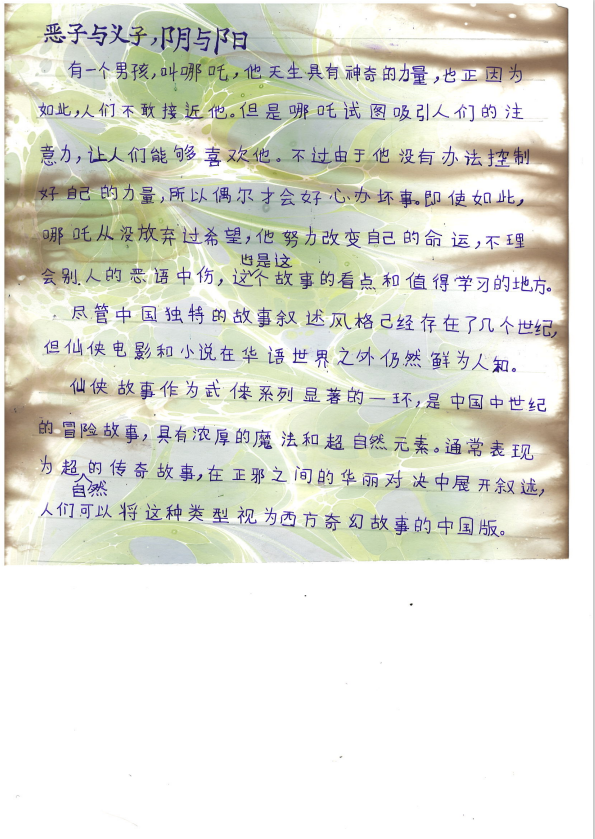 恶子与义子，阴与阳
有一个男孩，叫哪吒，他天生具有神奇的力量，也正因为
如此，人们不敢接近他。但是哪吒试图吸引人们的注
意力，让人们能够喜欢他。不过由于他没有办法控制
好自己的力量，所以偶尔才会好心办坏事。即使如此，
哪吒从没放弃过希望，他努力改变自己的命运，不理
也是这
会别人的恶语中伤，这个故事的看点和值得学习的地方。
尽管中国独特的故事叙述风格已经存在了几个世纪，
但仙侠电影和小说在华语世界之外仍然鲜为人知。
仙侠故事作为武侠系列显著的一环，是中国中世纪
的冒险故事，具有浓厚的魔法和超自然元素。通常表现
为超的传奇故事，在正邪之间的华丽对决中展开叙述，
自然
人们可以将这种类型视为西方奇幻故事的中国版。